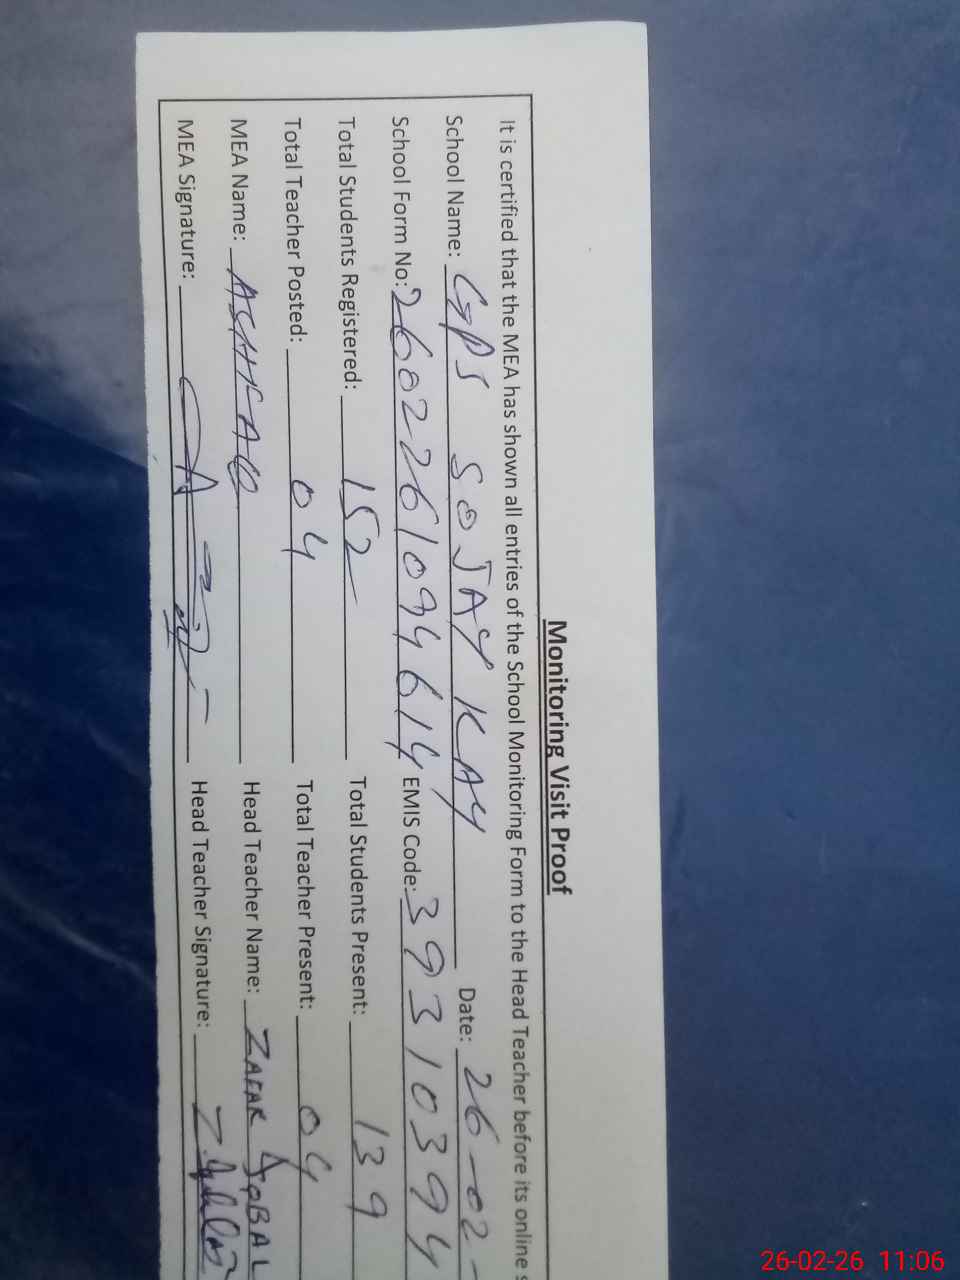 Monitoring Visit Proof
It is certified that the MEA has shown all entries of the School Monitoring Form to the Head Teacher before its online
School Name: GPS SOJAY KAY Date: 26-02-
School Form No: 2602261094614 EMIS Code: 39310394
Total Students Registered: 152 Total Students Present: 139
Total Teacher Posted: 04 Total Teacher Present: 04
MEA Name: ASHFAQ Head Teacher Name: ZAFAR IQBAL
MEA Signature: Head Teacher Signature:
26-02-26 11:06